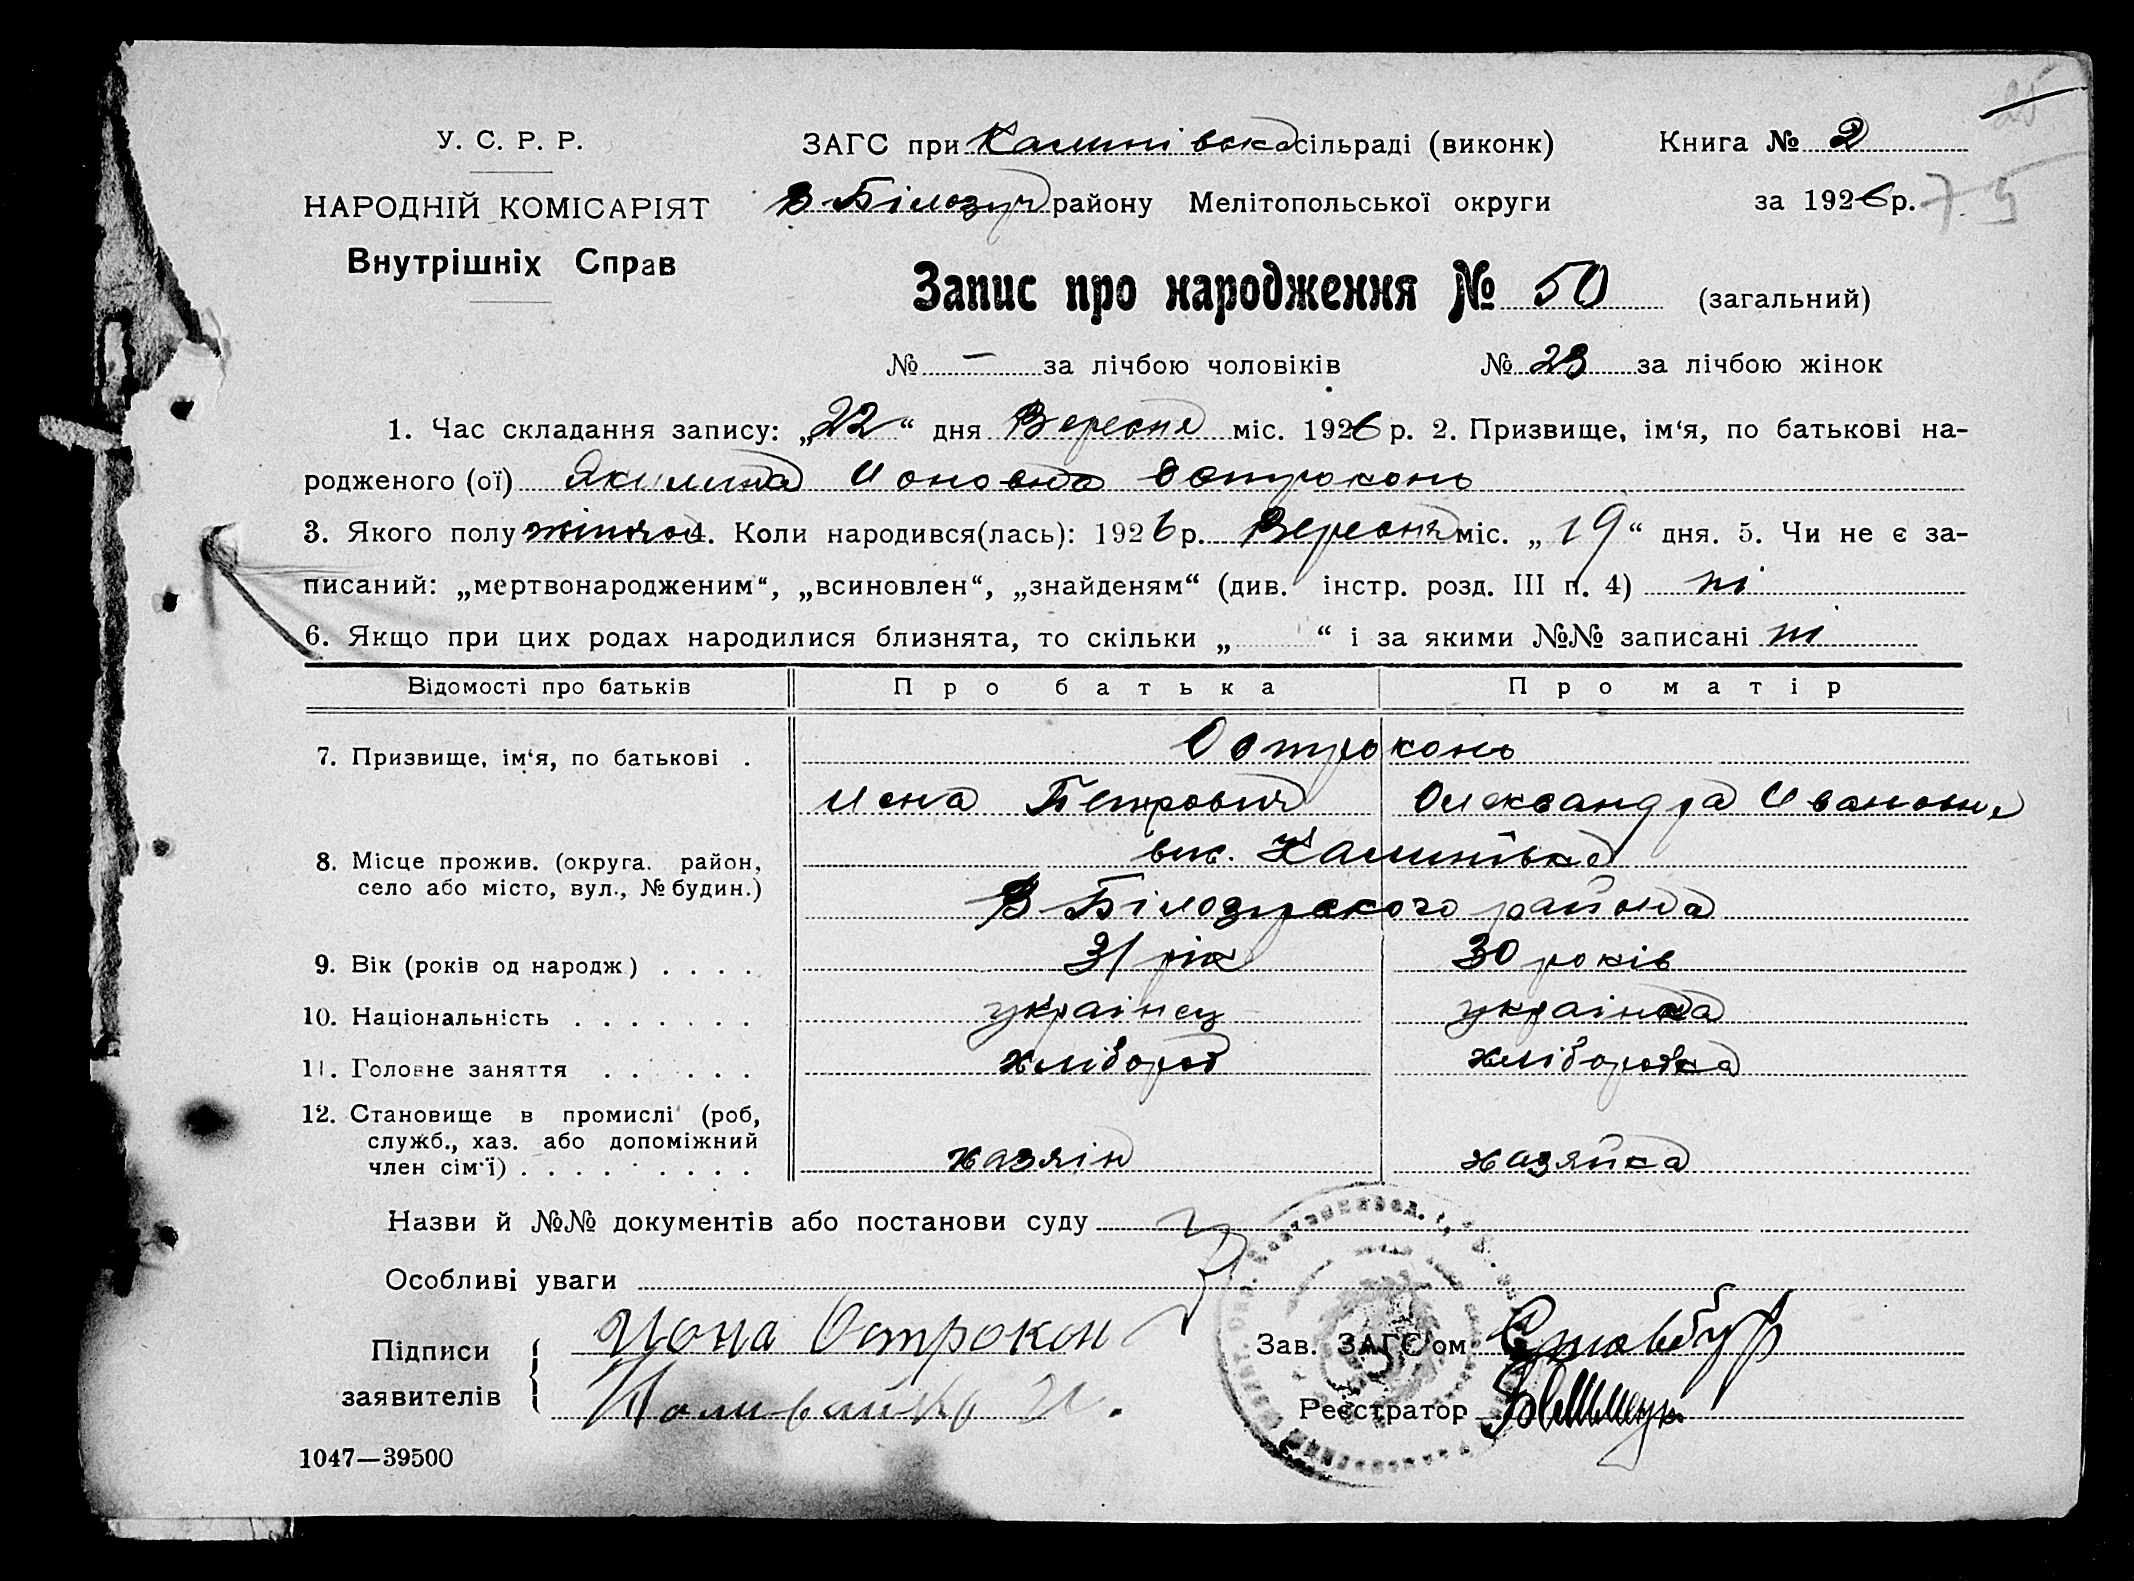 У. С. Р. Р.
НАРОДНІЙ КОМІСАРІЯТ
Внутрішніх Справ
ЗАГС при Калинівска сільраді (виконк)
В Білозир району Мелітопольської округи
Книга № 2
за 1926 р.
75
Запис про народження № 50 (загальний)
№ — за лічбою чоловіків № 23 за лічбою жінок
1. Час складання запису: „22“ дня Вересня міс. 1926 р. 2. Призвище, ім‘я, по батькові на-
родженого (ої) Якилина Ионовна Остроконь
3. Якого полу жіноч 4. Коли народився(лась): 1926 р. Вересня міс. „19“ дня. 5. Чи не є за-
писаний: „мертвонародженим“, „всиновлен“, „знайденям“ (див. інстр. розд. III п. 4) ні
6. Якщо при цих родах народилися близнята, то скільки „ “ і за якими №№ записані ні
Відомості про батьків Про батька Про матір
7. Призвище, ім‘я, по батькові . Остроконь
Иона Петрович Олександра Ивановна
8. Місце прожив. (округа. район, село або місто, вул., № будин.) вис. Калинівка
В-Білозирского района
9. Вік (років од народж) . . . . 31 рік 30 років
10. Національність . . . . . . . українец українка
11. Головне заняття . . . . . . хлібороб хліборобка
12. Становище в промислі (роб,
служб., хаз. або допоміжний
член сім‘ї) . . . . . . . . . хазяін хазяйка
Назви й №№ документів або постанови суду
Особливі уваги
Підписи заявителів { Иона Острокон
Зав. ЗАГС‘ом
Реєстратор
1047—39500